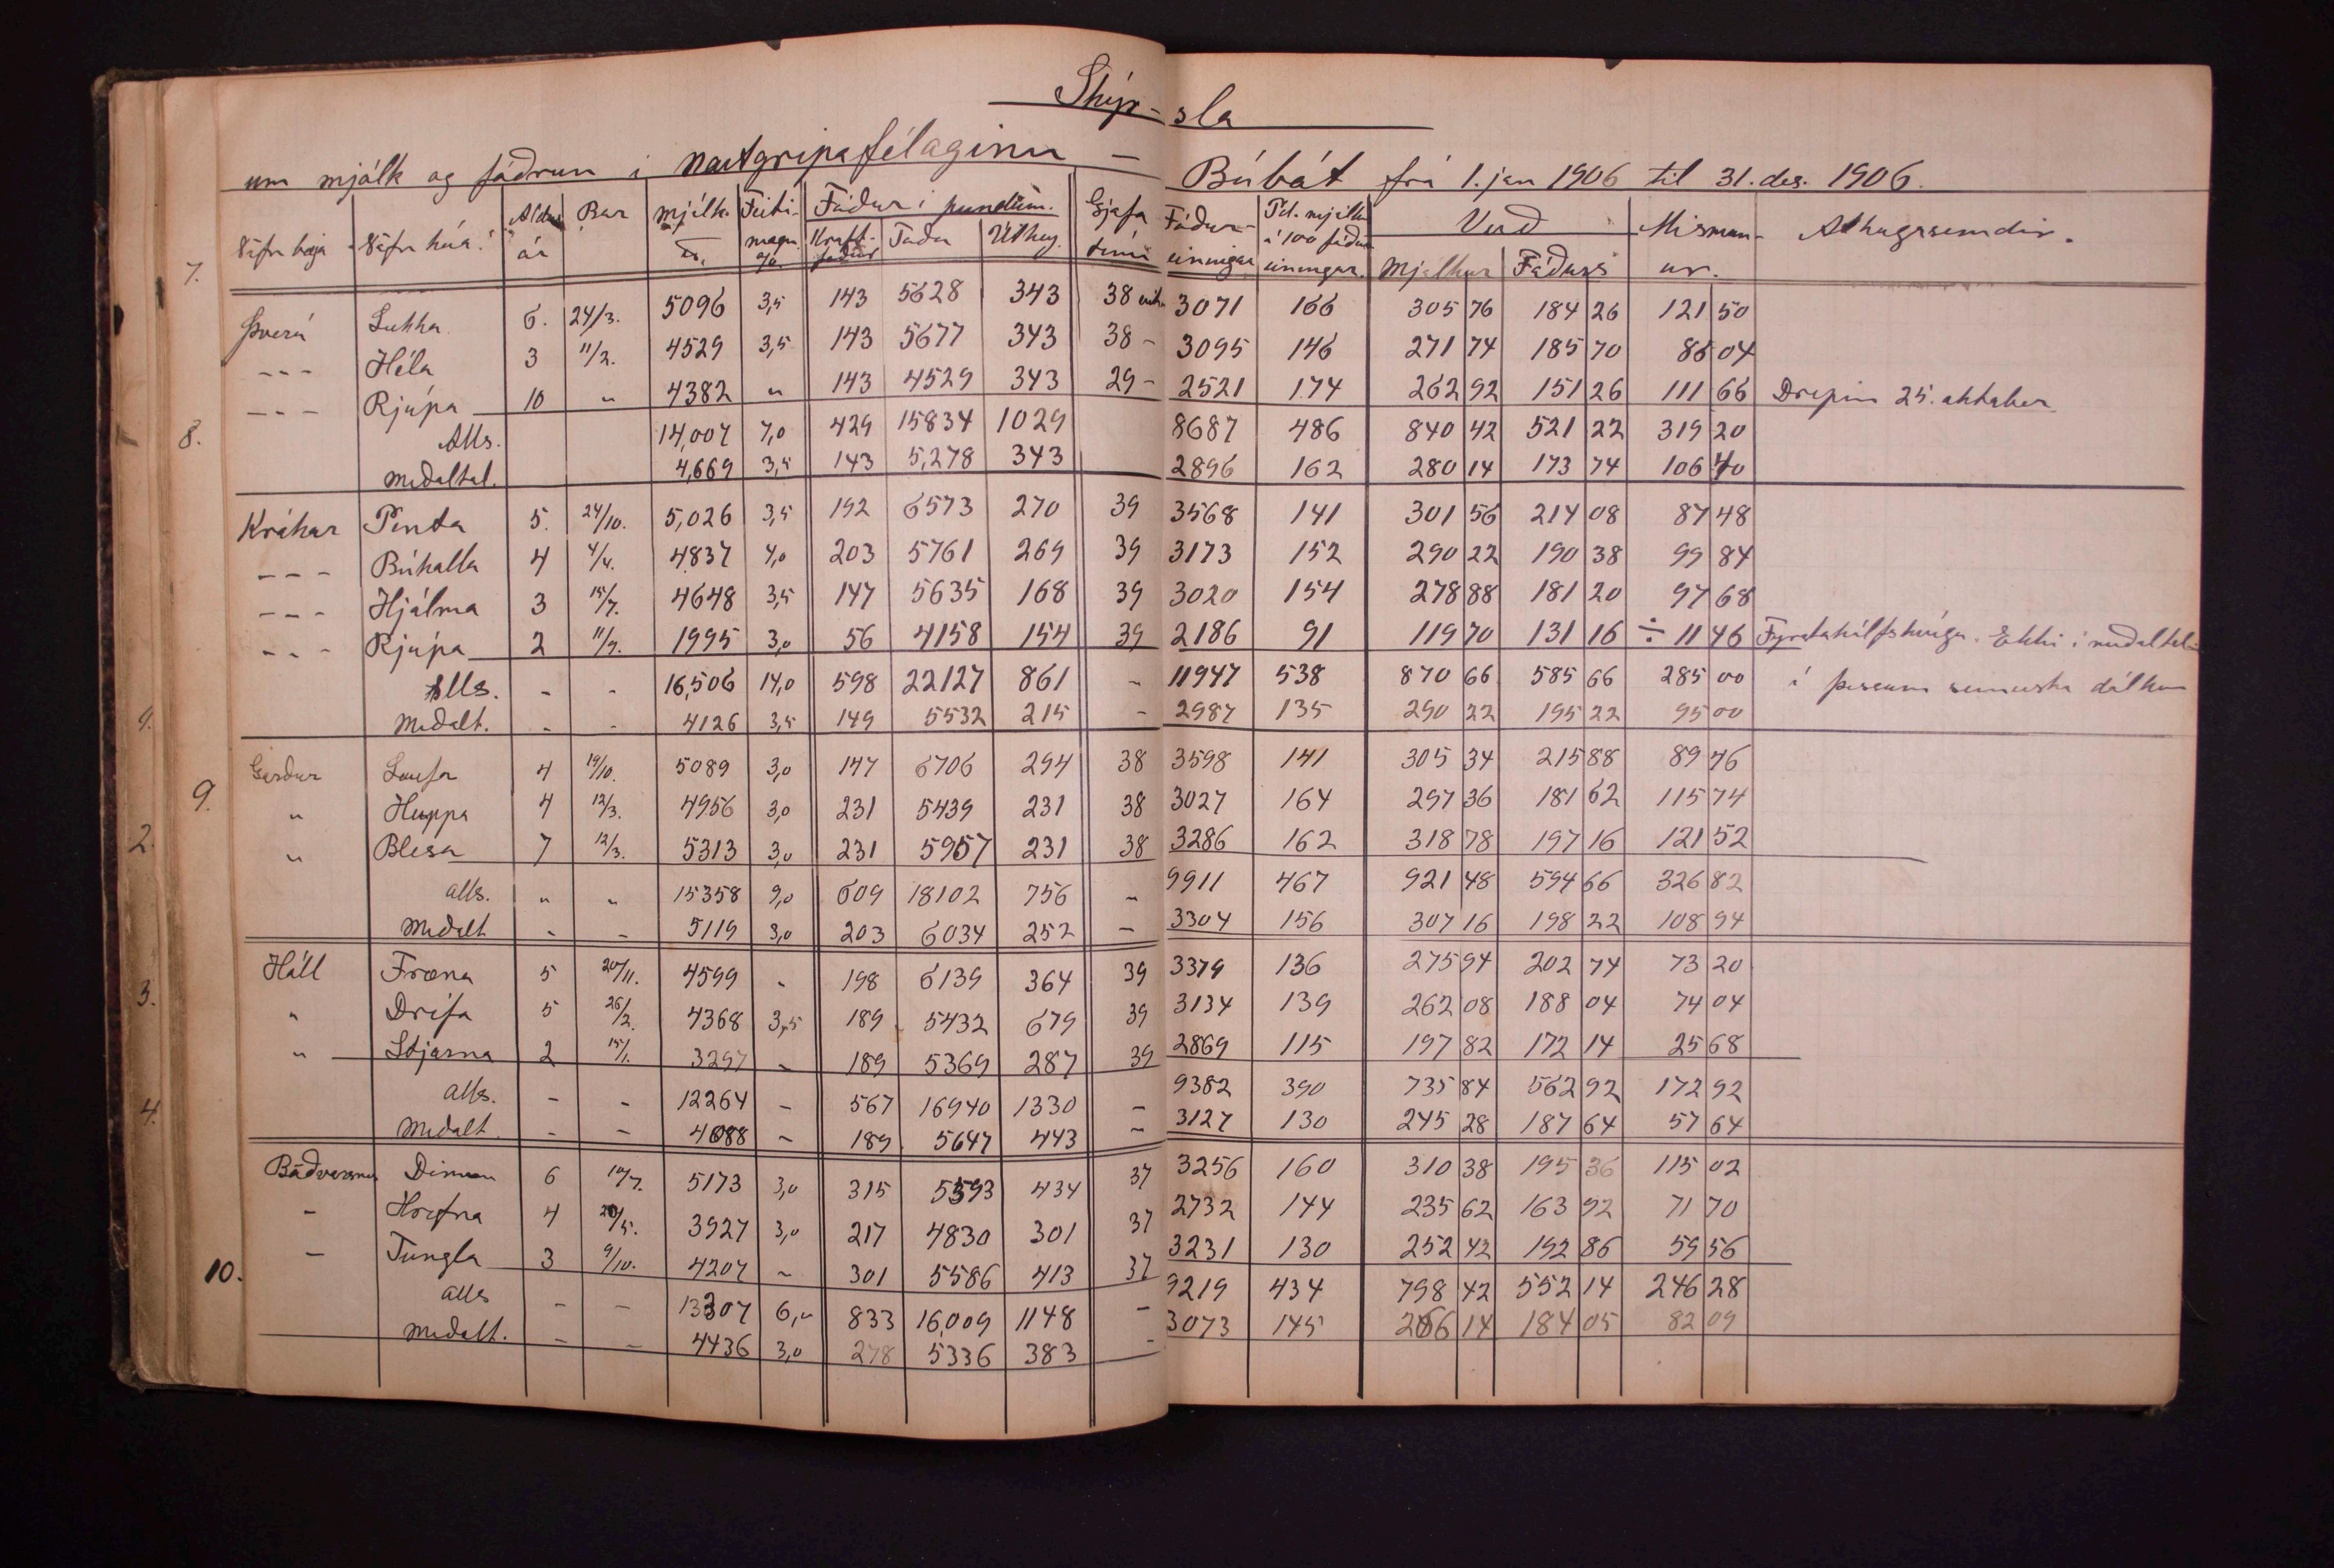 Skýr- sla
um mjólk og fóðrun í nautgripafélaginu — Búbót frá 1. jan 1906 til 31. des. 1906.
Nöfn bæja Nöfn kúa. Aldur ár Bar Mjólk Feiti- magn % Fóður í pundum. Kraft- fóður Taða Úthey. Gjafa tími Fóður- einingar Pd. mjólkur í 100 fóður einingar. Verð Mjólkur Fóðurs Mismun- ur. Athugasemdir.
7.
Þverá Lukka 6. 24/3. 5096 3,5 143 5628 343 38 3071 166 305 76 184 26 121 50
--- Héla 3 11/2. 4529 3,5 143 5677 343 38 - 3095 146 271 74 185 70 86 04
--- Rjúpa 10 " 4382 " 143 4529 343 29 - 2521 174 262 92 151 26 111 66 Drepin 25. oktober
8. Alls. 14,007 7,0 429 15834 1029 8687 486 840 42 521 22 319 20
Meðaltal. 4,669 3,5 143 5,278 343 2896 162 280 14 173 74 106 40
Krákár Penta 5. 24/10. 5,026 3,5 192 6573 270 39 3568 141 301 56 214 08 87 48
--- Búkolla 4 4/4. 4837 4,0 203 5761 269 39 3173 152 290 22 190 38 99 84
--- Hjálma 3 15/7. 4648 3,5 147 5635 168 39 3020 154 278 88 181 20 97 68
--- Rjúpa 2 11/9. 1995 3,0 56 4158 154 39 2186 91 119 70 131 16 ÷ 11 46 Fyrstakálfskvíga. Ekki í meðaltali
Alls. - - 16,506 14,0 598 22127 861 - 11947 538 870 66 585 66 285 00 í þessum dálkum
Meðalt. - - 4126 3,5 149 5532 215 - 2987 135 290 22 195 22 95 00
Garður Laufa 4 19/10. 5089 3,0 147 6706 294 38 3598 141 305 34 215 88 89 46
9. " Huppa 4 12/3. 4956 3,0 231 5439 231 38 3027 164 297 36 181 62 115 74
2. " Blesa 7 12/3. 5313 3,0 231 5957 231 38 3286 162 318 78 197 16 121 52
alls. " " 15358 9,0 609 18102 756 - 9911 467 921 48 594 66 326 82
Meðalt - - 5119 3,0 203 6034 252 - 3304 156 307 16 198 22 108 94
Háll Fræna 5 20/11. 4599 - 198 6139 364 39 3379 136 275 94 202 74 73 20
3. " Drífa 5 26/2. 4368 3,5 189 5432 679 39 3134 139 262 08 188 04 74 04
" Stjarna 2 15/1. 3297 - 189 5369 287 39 2869 115 197 82 172 14 25 68
4. alls. - - 12264 - 567 16940 1330 - 9382 390 735 84 562 92 172 92
Meðalt. - - 4088 - 189 5647 443 - 3127 130 245 28 187 64 57 64
Böðvarsnes Dimma 6 10/7. 5173 3,0 315 5593 434 37 3256 160 310 38 195 36 115 02
- Hrefna 4 20/5. 3927 3,0 217 4830 301 37 2732 144 235 62 163 92 71 70
- Tungla 3 9/10. 4207 - 301 5586 413 37 3231 130 252 42 192 86 59 56
10. alls - - 13307 6,0 833 16,009 1148 - 9219 434 798 42 552 14 246 28
Meðalt. - - 4436 3,0 278 5336 383 - 3073 145 266 14 184 05 82 09